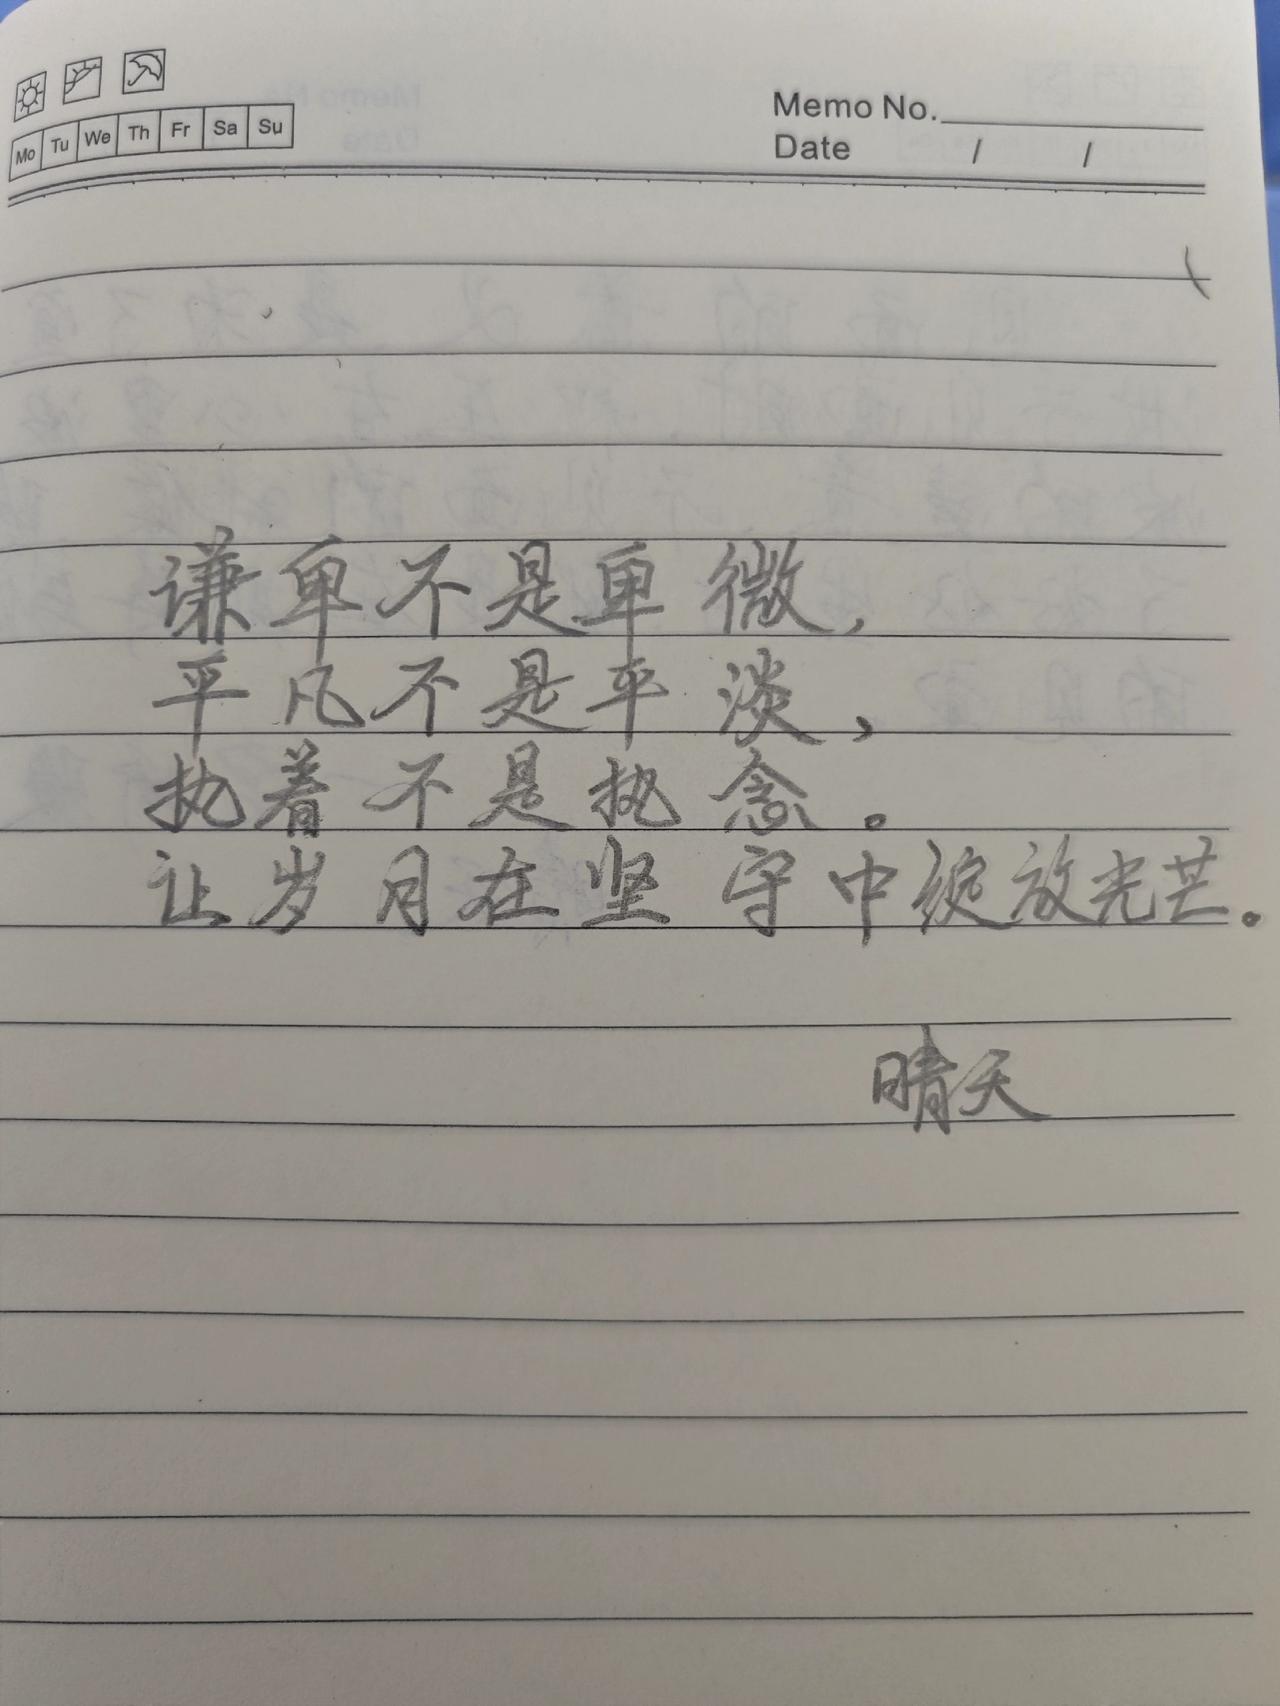 Mo Tu We Th Fr Sa Su
Memo No.
Date / /
谦卑不是卑微，
平凡不是平淡，
执着不是执念。
让岁月在坚守中绽放光芒。
晴天